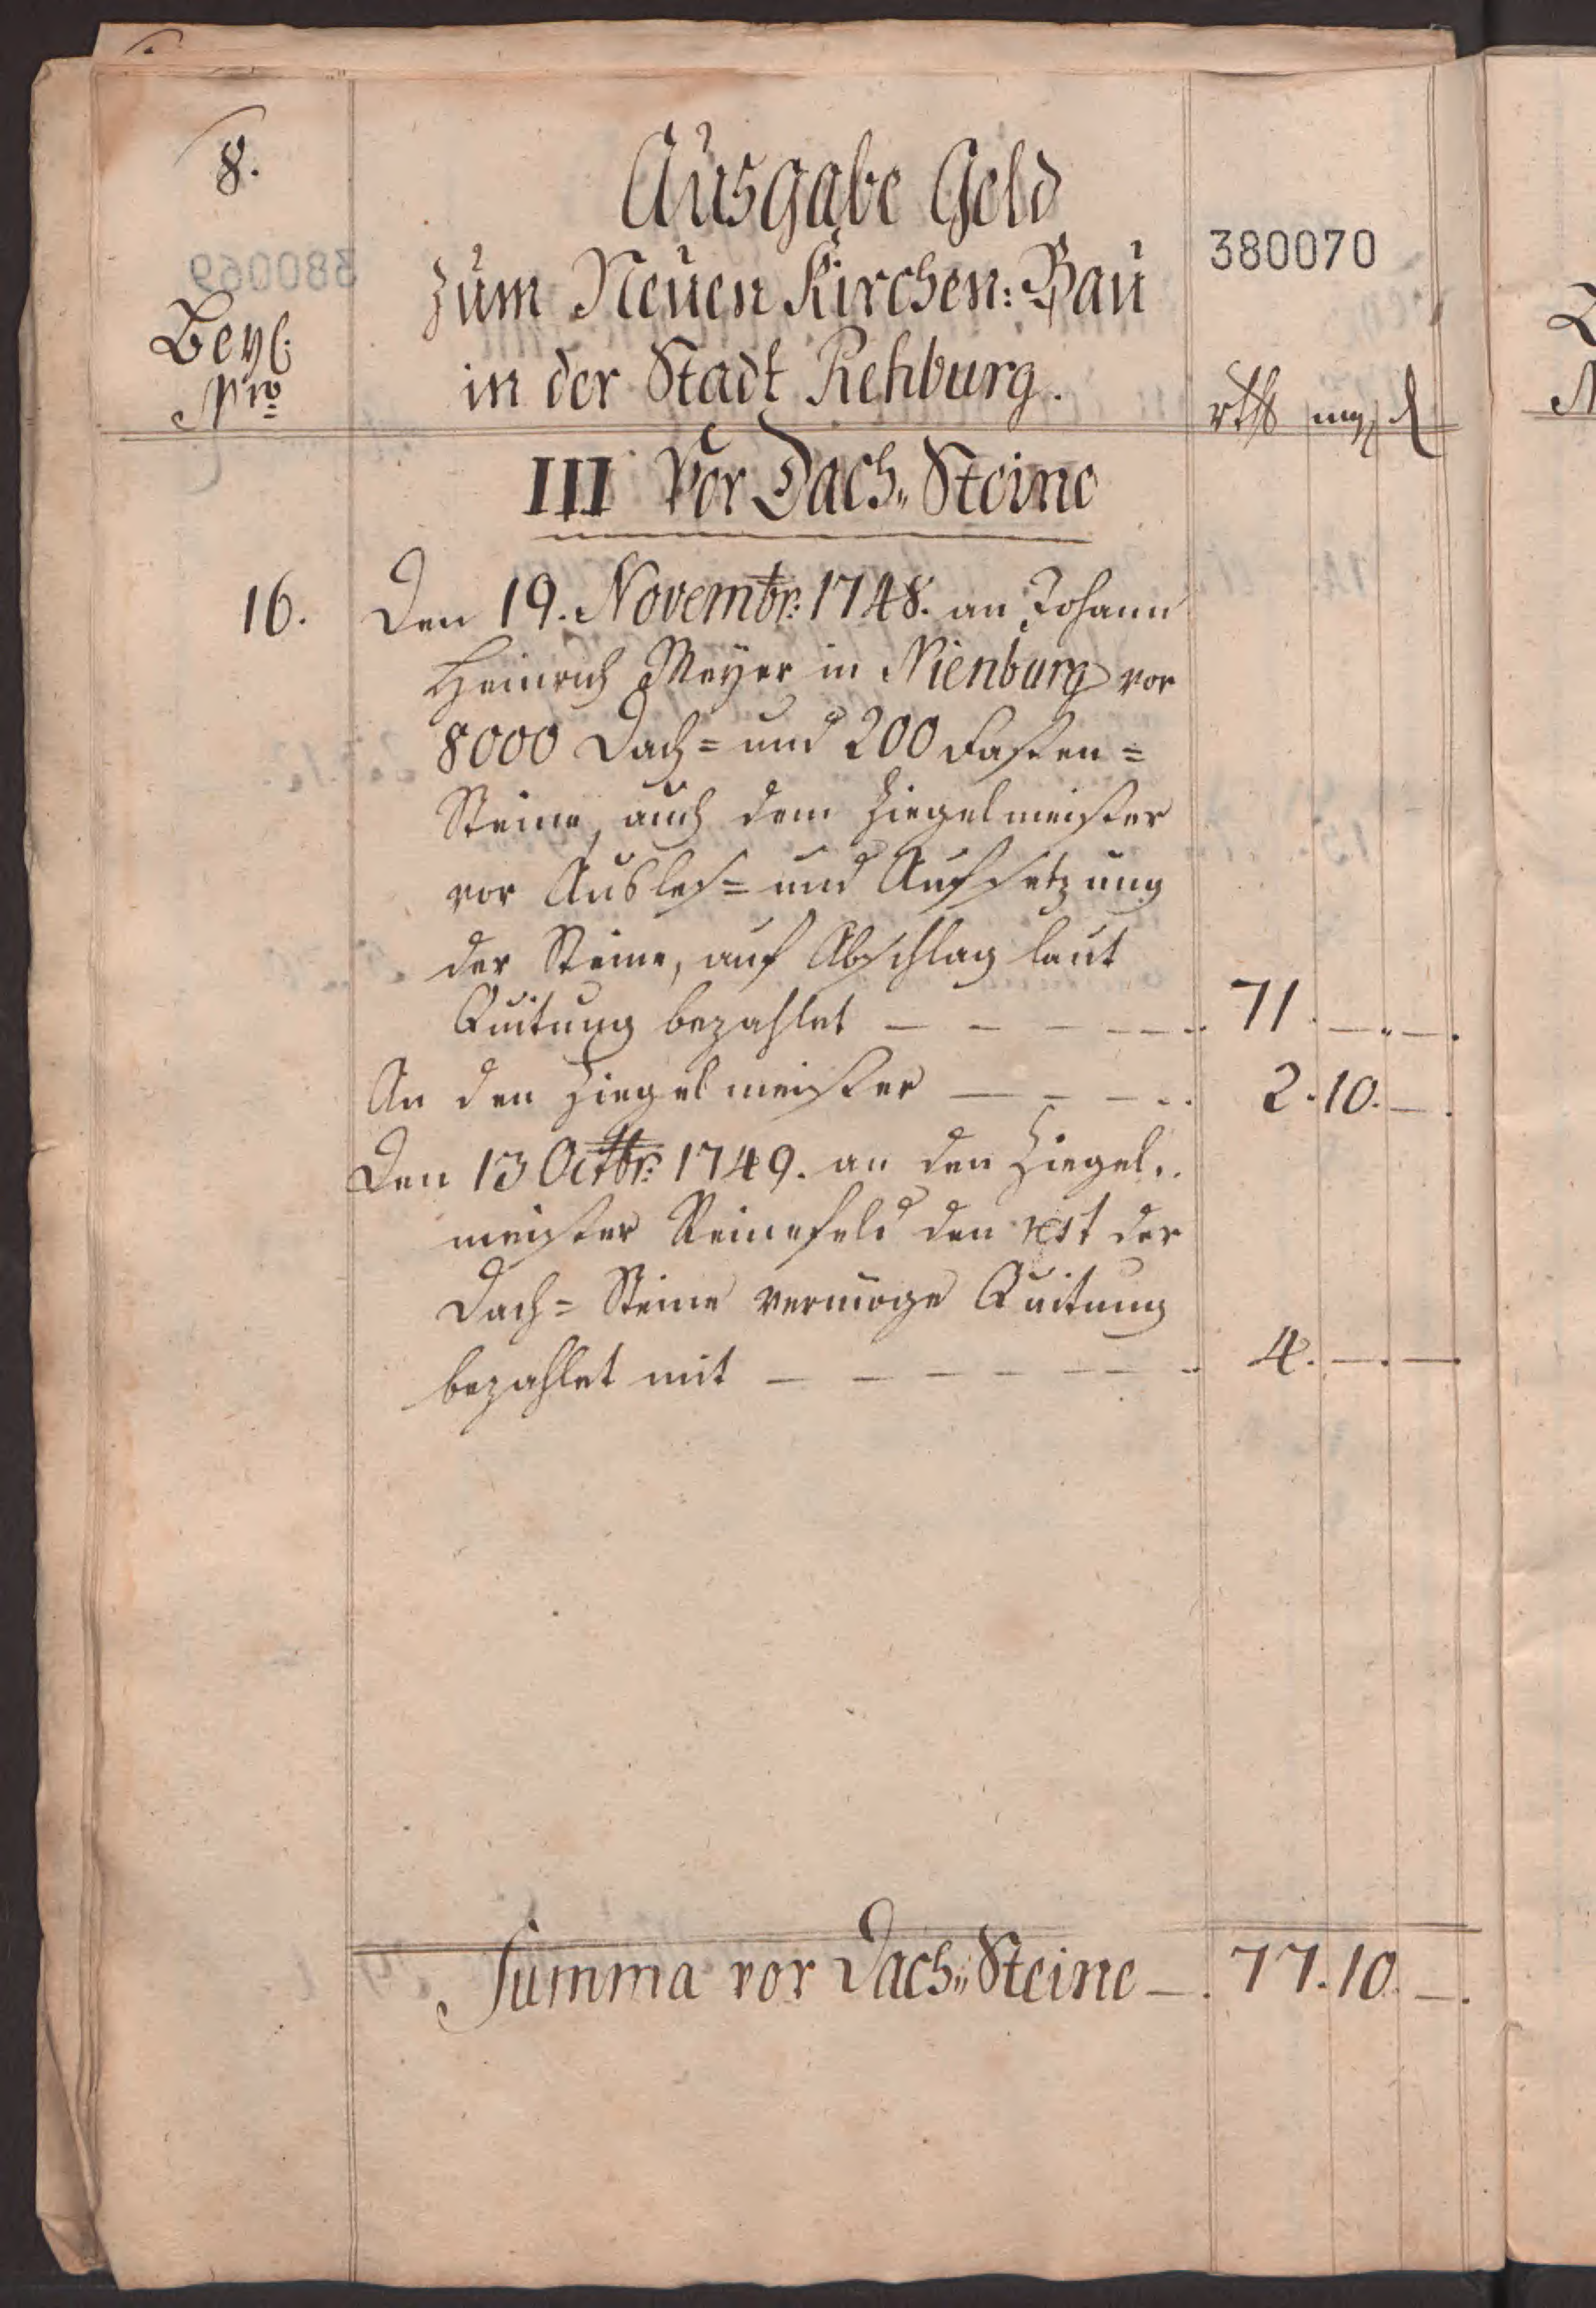 8.
Ausgabe Geld
380070
zum Neuen Kirchen: Bau
Beyl:
Nro
in der Stadt Rehburg.
rthl mg d
III Vor Dach„ Steine
16. Den 19. Novembr: 1748. an Johann
Heinrich Meyer in Nienburg vor
8000 Dach= und 200 Fasten=
Steine, auch dem Ziegelmeister
vor Ausles= und Aufsetzung
der Steine, auf Abschlag laut
Quitung bezahlet — — — — 71. —. —.
An den Ziegelmeister — — — 2. 10. —.
Den 13 Octbr: 1749. an den Ziegel„
meister Reinefeld den rest der
Dach= Steine vermöge Quitung
bezahlet mit — — — — — — 4. —. —.
Summa vor Dach„ Steine —. 77. 10. —.